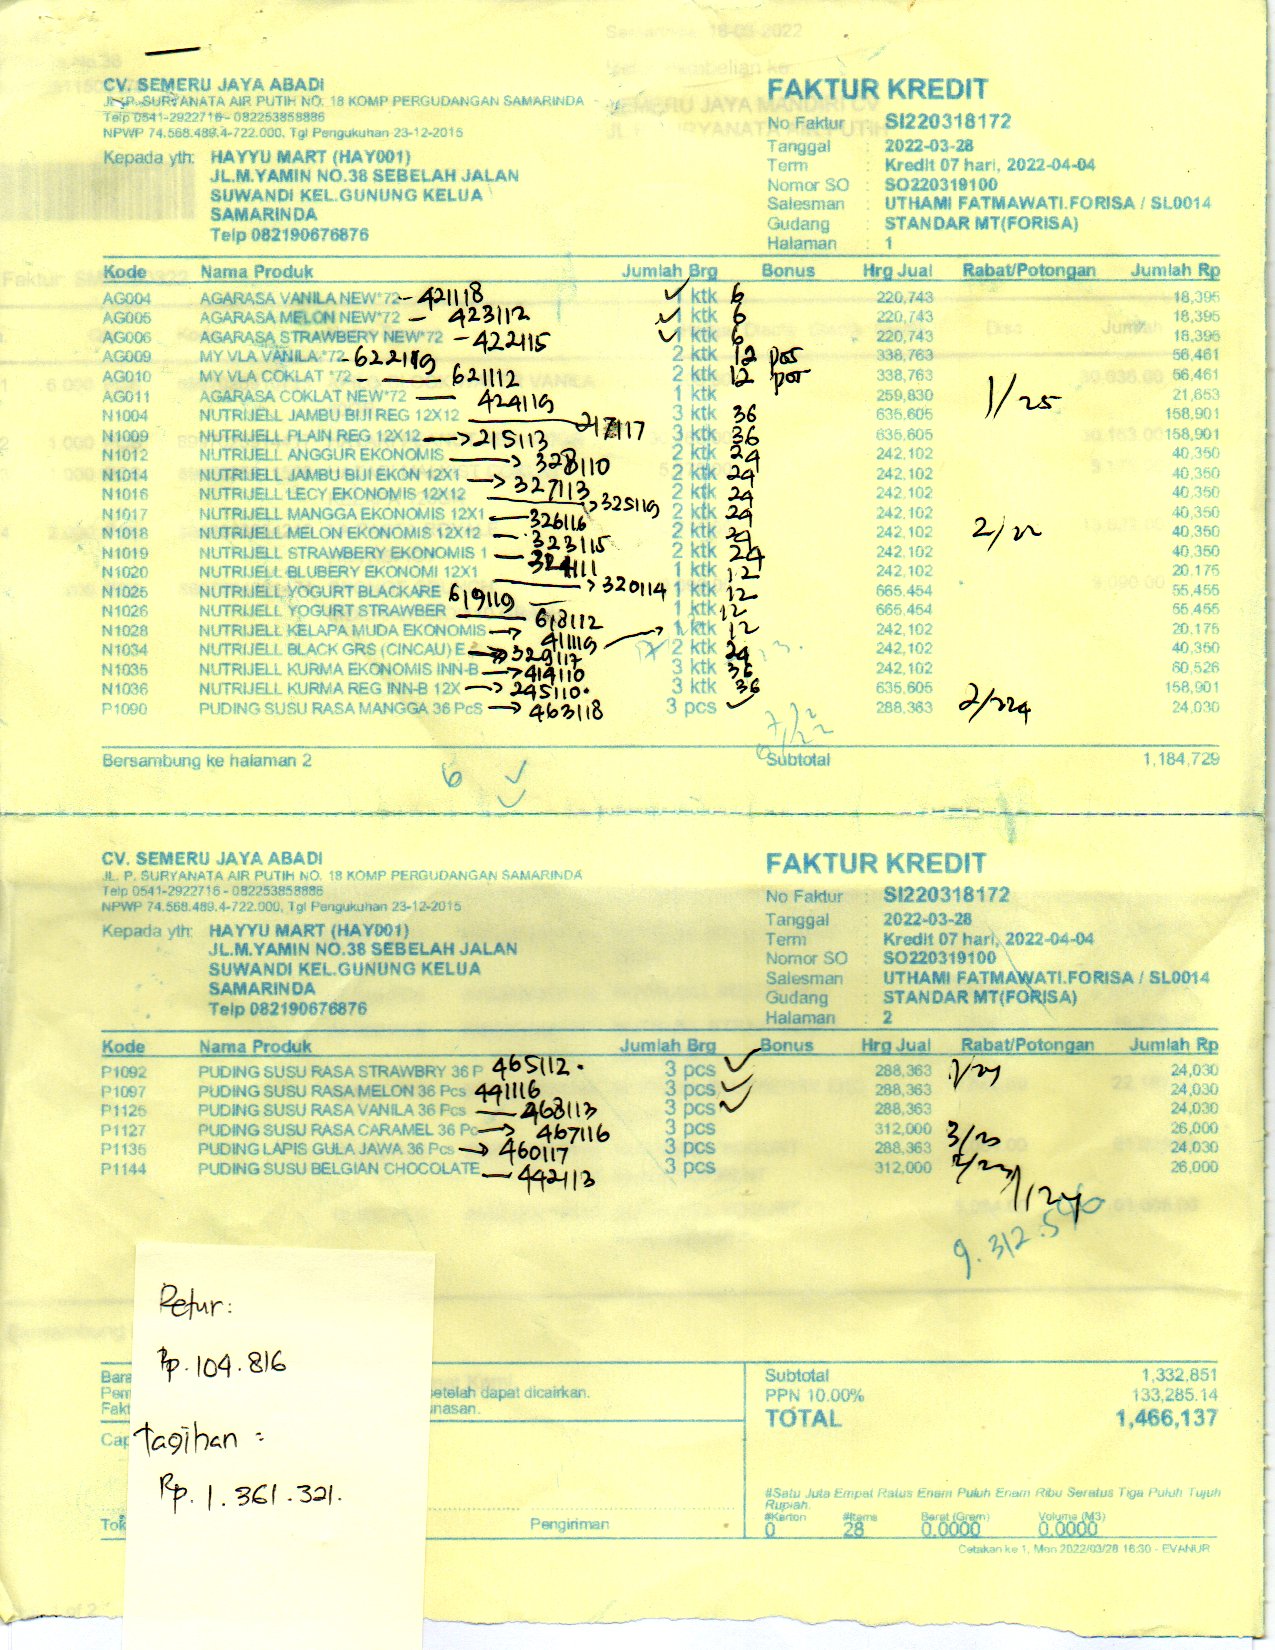 CV. SEMERU JAYA ABADI
JL. P. SURYANATA AIR PUTIH NO. 18 KOMP PERGUDANGAN SAMARINDA
Telp 0541-2922716 - 082253858886
NPWP 74.568.489.4-722.000, Tgl Pengukuhan 23-12-2015
Kepada yth: HAYYU MART (HAY001)
JL.M.YAMIN NO.38 SEBELAH JALAN
SUWANDI KEL.GUNUNG KELUA
SAMARINDA
Telp 082190676876
FAKTUR KREDIT
No Faktur : SI220318172
Tanggal : 2022-03-28
Term : Kredit 07 hari, 2022-04-04
Nomor SO : SO220319100
Salesman : UTHAMI FATMAWATI.FORISA / SL0014
Gudang : STANDAR MT(FORISA)
Halaman : 1
Kode Nama Produk Jumlah Brg Bonus Hrg Jual Rabat/Potongan Jumlah Rp
AG004 AGARASA VANILA NEW*72 - 421118 1 ktk 6 220,743 18,395
AG005 AGARASA MELON NEW*72 - 423112 1 ktk 6 220,743 18,395
AG006 AGARASA STRAWBERY NEW*72 - 422115 1 ktk 6 220,743 18,395
AG009 MY VLA VANILA *72 - 622119 2 ktk 12 pot 338,763 56,461
AG010 MY VLA COKLAT *72 - 621112 2 ktk 12 pot 338,763 56,461
AG011 AGARASA COKLAT NEW*72 - 424119 1 ktk 259,830 1/25 21,653
N1004 NUTRIJELL JAMBU BIJI REG 12X12 217117 3 ktk 36 635,605 158,901
N1009 NUTRIJELL PLAIN REG 12X12 215113 3 ktk 36 635,605 158,901
N1012 NUTRIJELL ANGGUR EKONOMIS 328110 2 ktk 24 242,102 40,350
N1014 NUTRIJELL JAMBU BIJI EKON 12X1 327113 2 ktk 24 242,102 40,350
N1016 NUTRIJELL LECY EKONOMIS 12X12 325119 2 ktk 24 242,102 40,350
N1017 NUTRIJELL MANGGA EKONOMIS 12X1 326116 2 ktk 24 242,102 40,350
N1018 NUTRIJELL MELON EKONOMIS 12X12 323115 2 ktk 24 242,102 40,350
N1019 NUTRIJELL STRAWBERY EKONOMIS 1 324111 2 ktk 24 242,102 40,350
N1020 NUTRIJELL BLUBERY EKONOMI 12X1 320114 1 ktk 12 242,102 20,175
N1025 NUTRIJELL YOGURT BLACKARE 619119 1 ktk 12 665,454 55,455
N1026 NUTRIJELL YOGURT STRAWBER 618112 1 ktk 12 665,454 55,455
N1028 NUTRIJELL KELAPA MUDA EKONOMIS 411119 1 ktk 12 242,102 20,175
N1034 NUTRIJELL BLACK GRS (CINCAU) E 329117 2 ktk 24 242,102 40,350
N1035 NUTRIJELL KURMA EKONOMIS INN-B 414110 3 ktk 36 242,102 60,526
N1036 NUTRIJELL KURMA REG INN-B 12X 245110 3 ktk 36 635,605 158,901
P1090 PUDING SUSU RASA MANGGA 36 PcS 463118 3 pcs 288,363 24,030
Bersambung ke halaman 2 Subtotal 1,184,729
6
CV. SEMERU JAYA ABADI
JL. P. SURYANATA AIR PUTIH NO. 18 KOMP PERGUDANGAN SAMARINDA
Telp 0541-2922716 - 082253858886
NPWP 74.568.489.4-722.000, Tgl Pengukuhan 23-12-2015
Kepada yth: HAYYU MART (HAY001)
JL.M.YAMIN NO.38 SEBELAH JALAN
SUWANDI KEL.GUNUNG KELUA
SAMARINDA
Telp 082190676876
FAKTUR KREDIT
No Faktur : SI220318172
Tanggal : 2022-03-28
Term : Kredit 07 hari, 2022-04-04
Nomor SO : SO220319100
Salesman : UTHAMI FATMAWATI.FORISA / SL0014
Gudang : STANDAR MT(FORISA)
Halaman : 2
Kode Nama Produk Jumlah Brg Bonus Hrg Jual Rabat/Potongan Jumlah Rp
P1092 PUDING SUSU RASA STRAWBRY 36 P 465112 3 pcs 288,363 24,030
P1097 PUDING SUSU RASA MELON 36 Pcs 441116 3 pcs 288,363 24,030
P1125 PUDING SUSU RASA VANILA 36 Pcs 468113 3 pcs 288,363 24,030
P1127 PUDING SUSU RASA CARAMEL 36 Pc 467116 3 pcs 312,000 26,000
P1135 PUDING LAPIS GULA JAWA 36 Pcs 460117 3 pcs 288,363 24,030
P1144 PUDING SUSU BELGIAN CHOCOLATE 442113 3 pcs 312,000 26,000
Retur:
Rp. 104.816
tagihan :
Rp. 1.361.321.
setelah dapat dicairkan.
Pengiriman
Subtotal 1,332,851
PPN 10.00% 133,285.14
TOTAL 1,466,137
#Satu Juta Empat Ratus Enam Puluh Enam Ribu Seratus Tiga Puluh Tujuh
Rupiah.
#Karton #Items Berat (Gram) Volume (M3)
0 28 0.0000 0.0000
Cetakan ke 1, Mon 2022/03/28 16:30 - EVANUR